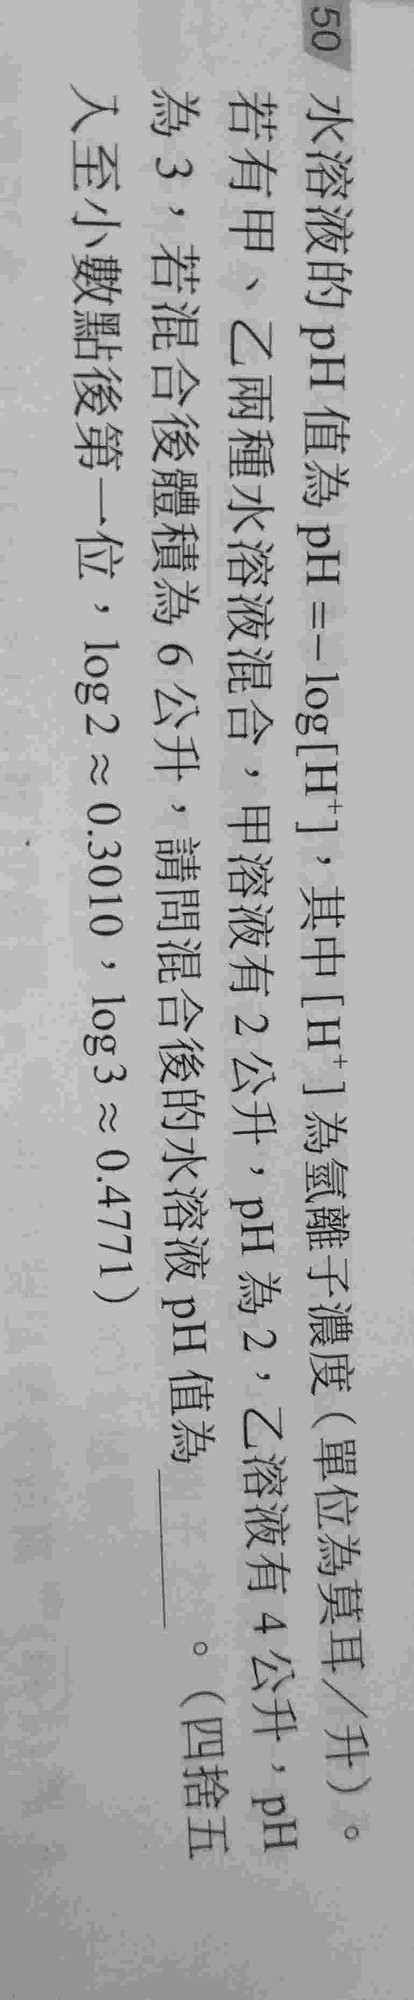 50 水溶液的 pH 值為 pH =− log[H⁺]，其中 [H⁺] 為氫離子濃度（單位為莫耳／升）。
若有甲、乙兩種水溶液混合，甲溶液有 2 公升，pH 為 2，乙溶液有 4 公升，pH
為 3，若混合後體積為 6 公升，請問混合後的水溶液 pH 值為______。（四捨五
入至小數點後第一位，log2 ≈ 0.3010，log3 ≈ 0.4771）